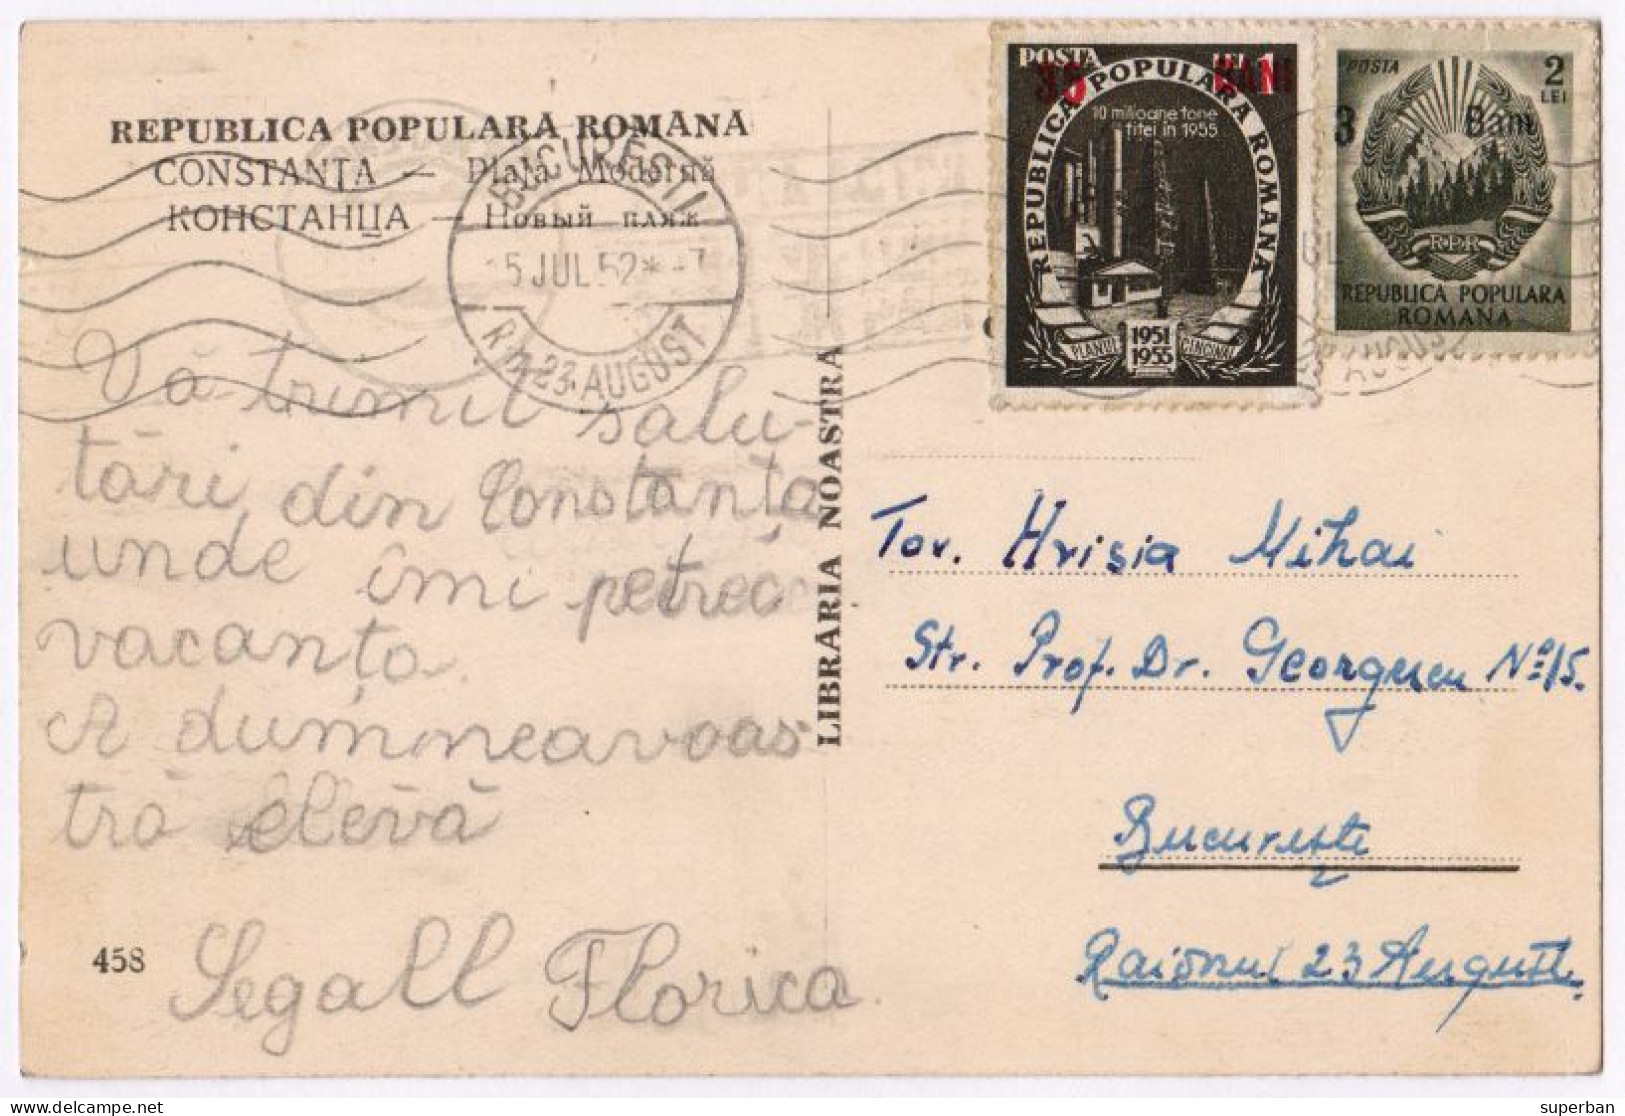 REPUBLICA POPULARA ROMANA
CONSTANȚA — Plaja Modernă
КОНСТАНЦА — Новый пляж
BUCUREȘTI
5 JUL 52 * -7
R-n. 23. AUGUST
Vă trimit salu-
tări din Constanța
unde îmi petrec
vacanța.
A dumneavoas
tră elevă
Segall Florica
458
LIBRARIA NOASTRA
POSTA LEI 1
35 BANI
REPUBLICA POPULARA ROMANA
10 milioane tone
titei in 1955
1951
1955
PLANUL CINCINAL
POSTA 2
LEI
3 Bani
RPR
REPUBLICA POPULARA
ROMANA
Tov. Hrisia Mihai
Str. Prof. Dr. Georgescu No 15.
București
Raionul 23 August
superban